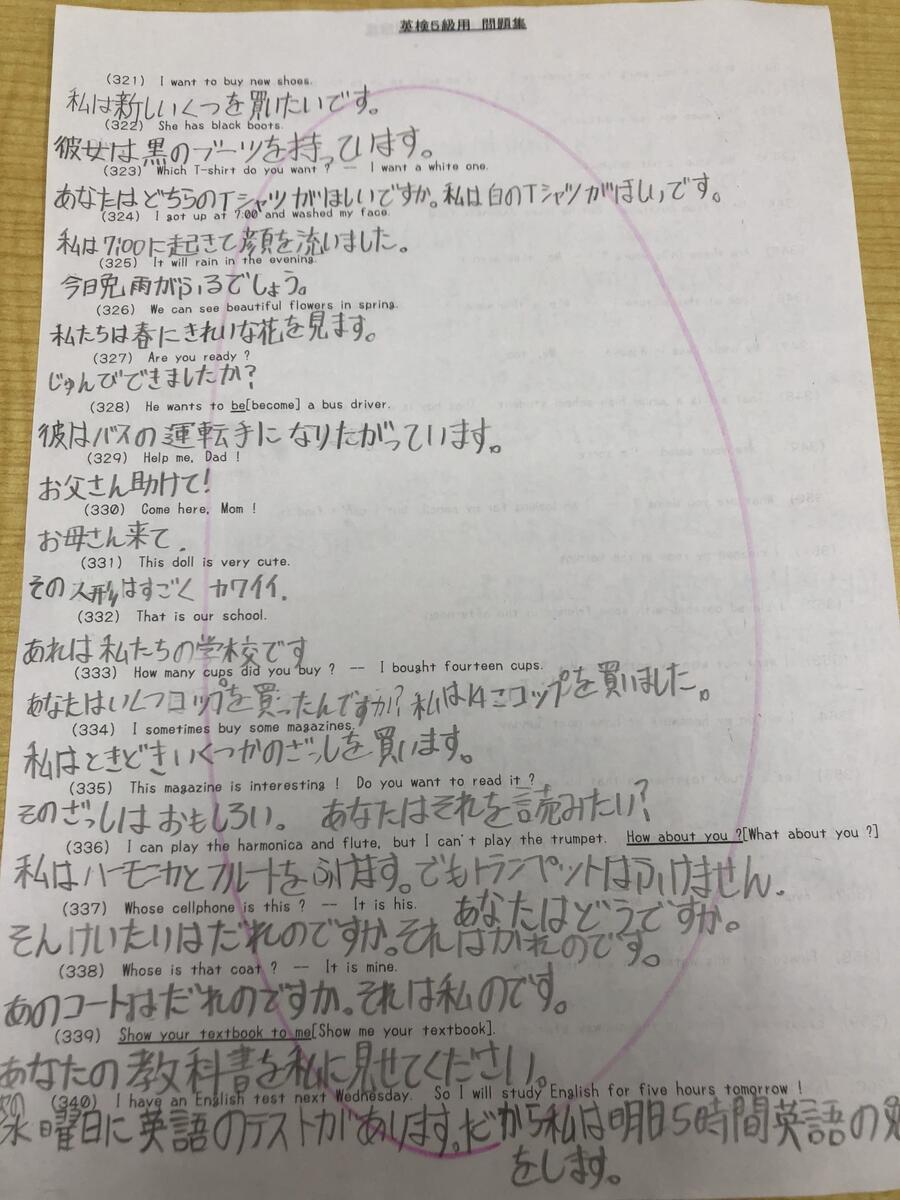 英検5級用 問題集
(321) I want to buy new shoes.
私は新しいくつを買いたいです。
(322) She has black boots.
彼女は黒のブーツを持っています。
(323) Which T-shirt do you want ? -- I want a white one.
あなたはどちらのTシャツがほしいですか。私は白のTシャツがほしいです。
(324) I got up at 7:00 and washed my face.
私は7:00に起きて顔を流いました。
(325) It will rain in the evening.
今日免雨がふるでしょう。
(326) We can see beautiful flowers in spring.
私たちは春にきれいな花を見ます。
(327) Are you ready ?
じゅんびできましたか?
(328) He wants to be[become] a bus driver.
彼はバスの運転手になりたがっています。
(329) Help me, Dad !
お父さん助けて!
(330) Come here, Mom !
お母さん来て.
(331) This doll is very cute.
その人形はすごくカワイイ.
(332) That is our school.
あれは私たちの学校です
(333) How many cups did you buy ? -- I bought fourteen cups.
あなたはいくつコップを買ったんですか?私は14こコップを買いました。
(334) I sometimes buy some magazines.
私はときどきいくつかのざっしを買います。
(335) This magazine is interesting ! Do you want to read it ?
そのざっしはおもしろい。 あなたはそれを読みたい?
(336) I can play the harmonica and flute, but I can't play the trumpet. How about you ?[What about you ?]
私はハーモニカとフルートをふけます。でもトランペットはふけません.
あなたはどうですか。
(337) Whose cellphone is this ? -- It is his.
そんけいたりはだれのですか。それはかれのです。
(338) Whose is that coat ? -- It is mine.
あのコートはだれのですか。それは私のです。
(339) Show your textbook to me[Show me your textbook].
あなたの教科書を私に見せてください。
(340) I have an English test next Wednesday. So I will study English for five hours tomorrow !
水曜日に英語のテストがあります。だから私は明日5時間英語の
をします。